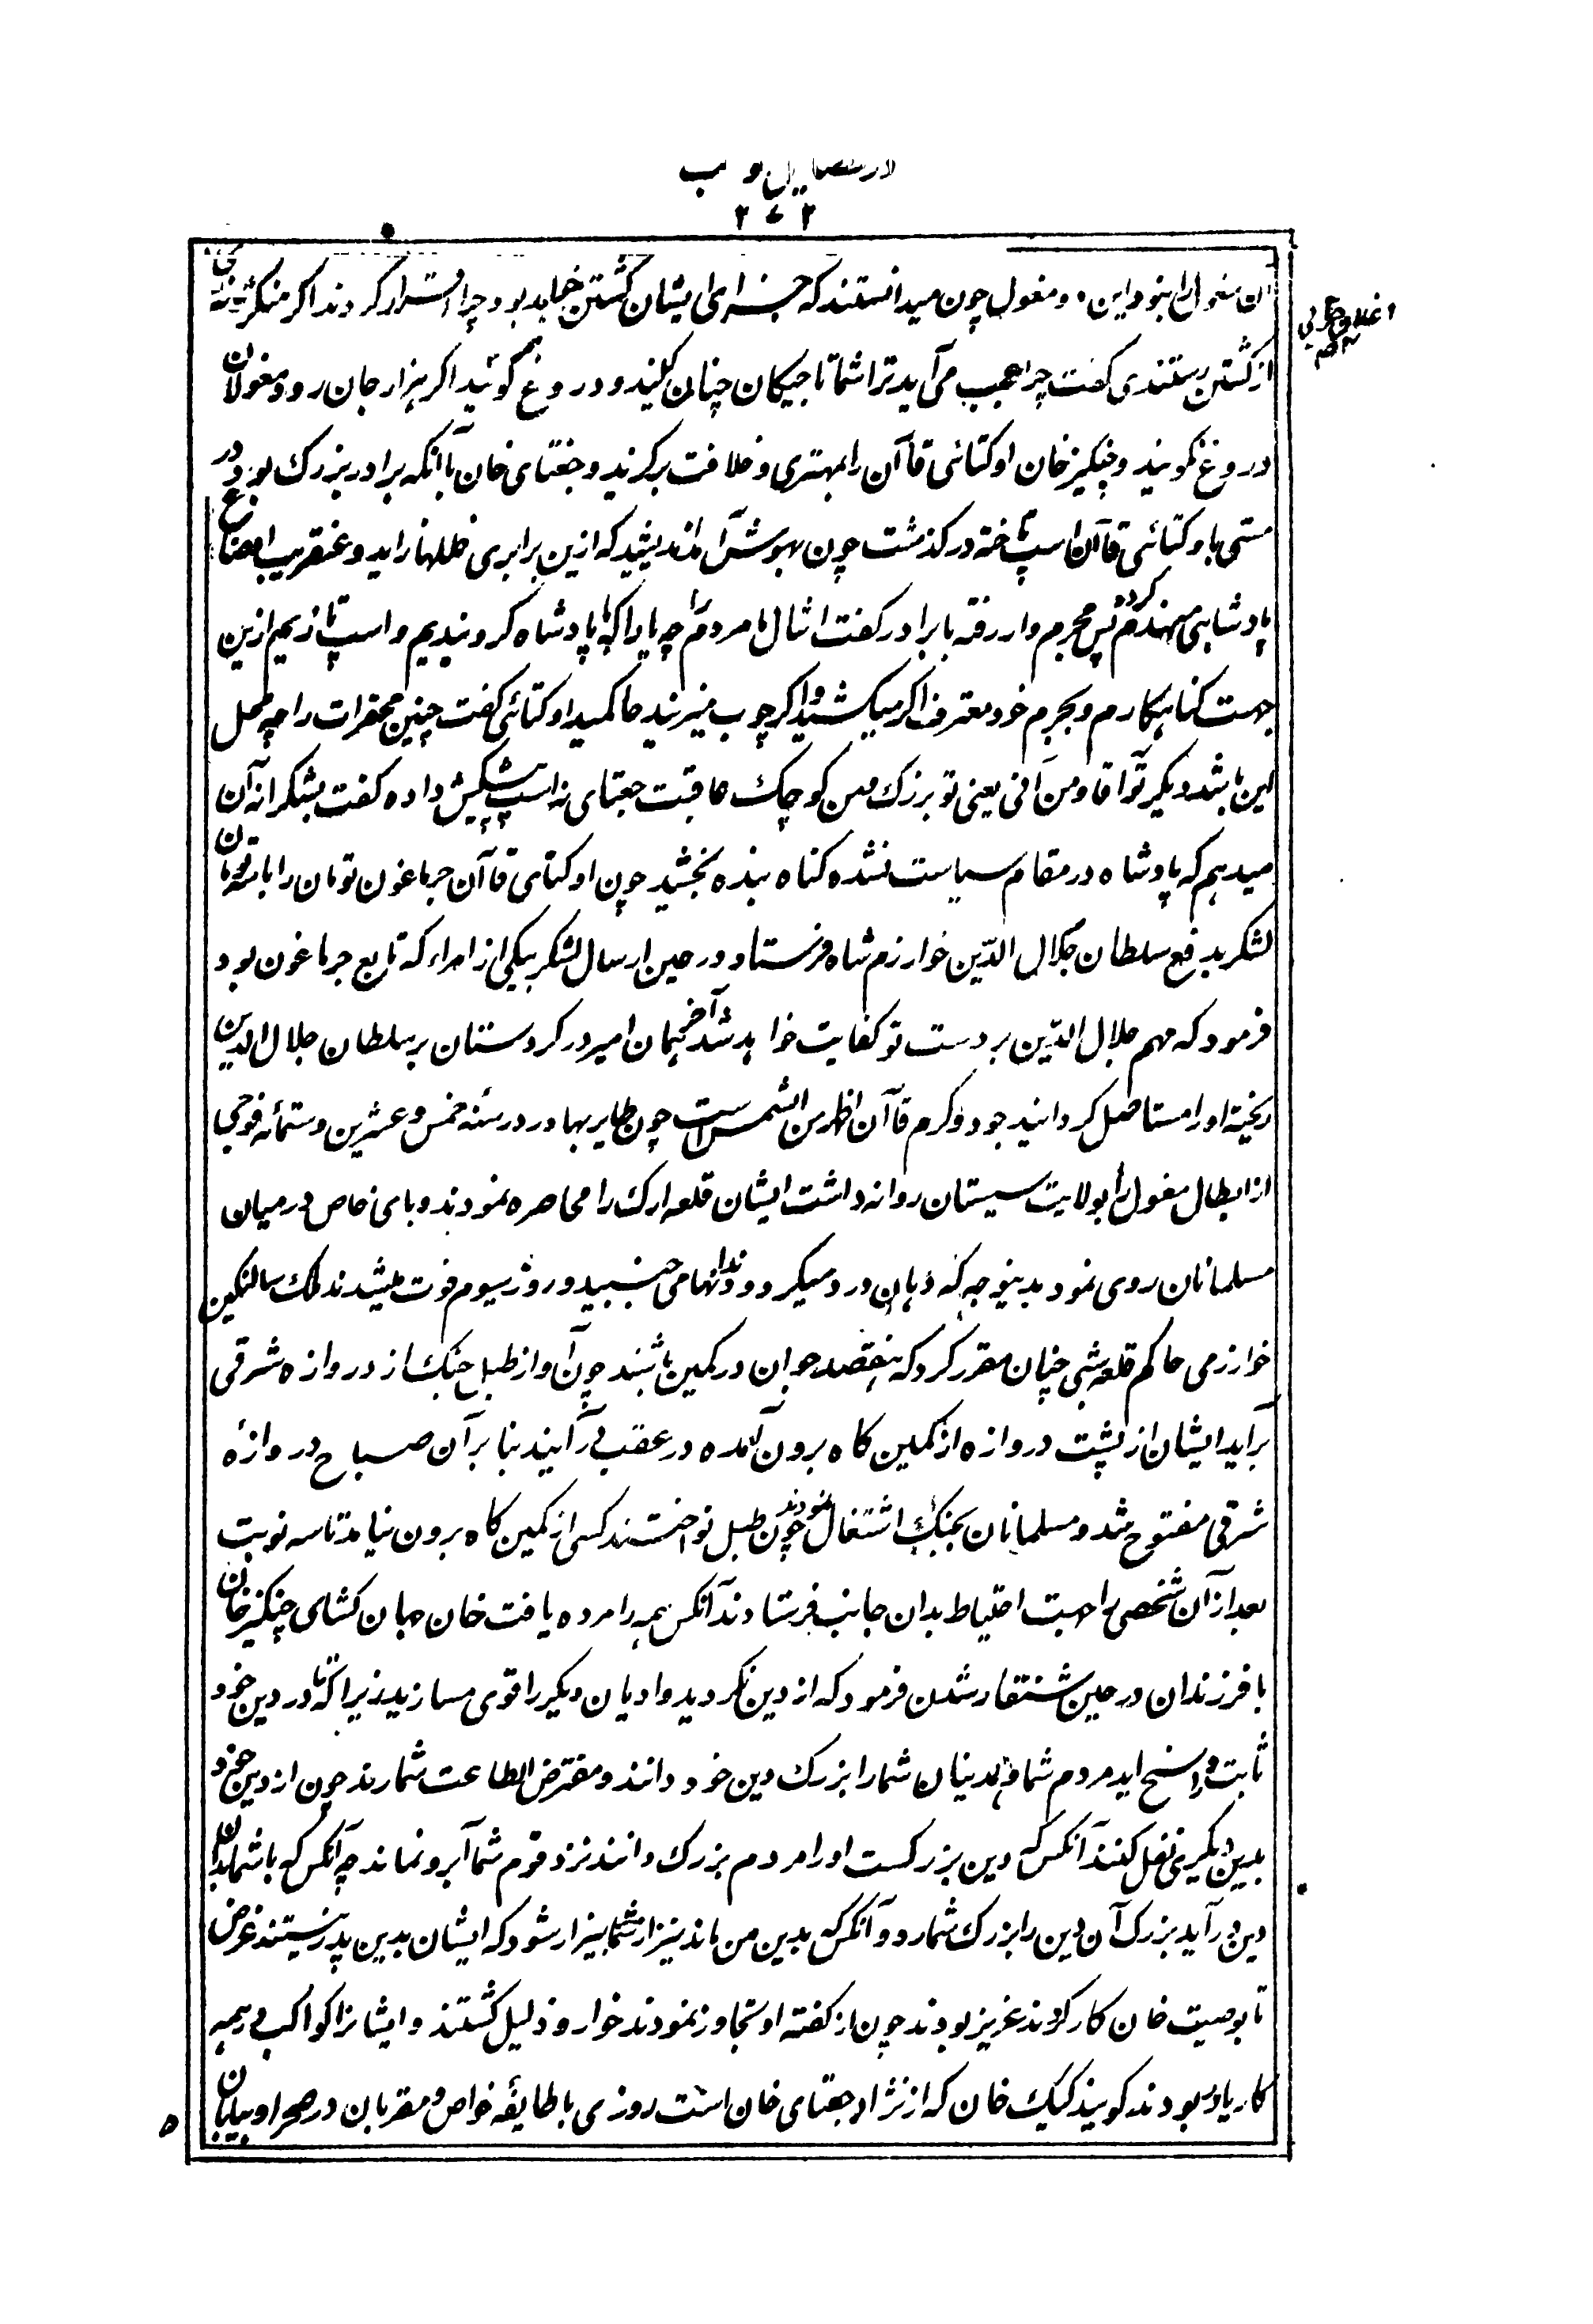 ۲۷۲
آن مغول را بنود این و مغول چون میدانستند که جزای ایشان کشتن خواهد بود چرا اقرار کردند اکر منکر شدندی
از کشتن رستندی کفت چرا عجب می‌آید ترا شما تاجیکان چنان کنید و دروغ کوئید اکر هزار جان رود مغولان
دروغ نکویند و چنکیز خان اوکتائی قاآن را بمهتری و خلافت برکزید و جغتای خان با آنکه برادر بزرک بود در
مستی با وکتائی قاآن اسپ تاخته درکذشت چون بهوش آمد اندیشید که ازین برابری خللها زاید و عنقریب
پادشاهی منهدم کردد پس مجرم وار رفته با برادر کفت امثال ما مردم را چه یارا که با پادشاه کرو بندیم و اسپ تازیم ازین
جهت کناهکارم و بجرم خود معترف اکر میکشید و اکر چوب میزنید حاکمید اوکتائی کفت چنین محقرات را چه محل
این باشد دیکر تو آقا و من اینی یعنی تو بزرک و من کوچک عاقبت جغتای نه اسپ پیشکش داده کفت بشکرانه آن
میدهم که پادشاه در مقام سیاست نشده کناه بنده بخشید چون اوکتای قاآن جرماغون تومان را با سه تومان
لشکر بدفع سلطان جلال الدّین خوارزم شاه فرستاد و در حین ارسال لشکر بیکی از امراء که تابع جرماغون بود
فرمود که مهم جلال الدّین بر دست تو کفایت خواهد شد آخر همان امیر در کردستان بر سلطان جلال الدین
ریخته او را مستاصل کردانید جود و کرم قاآن اظهر من الشمس است چون طایر بهادر در سنه خمس و عشرین و ستمائه فوجی
از ابطال مغول را بولایت سیستان روانه داشت ایشان قلعه ارک را محاصره نمودند و بای خاص در میان
مسلمانان روی نمود بدینوجه که دهان درد میکرد و دندانها می جنبید و روز سیوم فوت میشدند ملک سالنکین
خوارزمی حاکم قلعه شبی چنان مقرر کرد که هفتصد جوان در کمین باشند چون آواز طبل جنک از دروازه شرقی
برآید ایشان از پشت دروازه از کمین کاه برون آمده در عقب در آیند بنا بر آن صباح دروازهٔ
شرقی مفتوح شد و مسلمانان بجنک اشتغال نمودند چون طبل نواختند کسی از کمین کاه برون نیامد تا سه نوبت
بعد از آن شخصی را جهت احتیاط بدان جانب فرستادند آنکس همه را مرده یافت خان جهان کشای چنکیز خان
با فرزندان در حین شنقار شدن فرمود که از دین نکردید و ادیان دیکر را قوی مسازید زیرا که تا در دین خود
ثابت و راسخ اید مردم شما و همدینان شما را بزرک دین خود دانند و مفترض الطاعت شمارند چون از دین خود
بدین دیکری نقل کنند آنکس که دین بزرکست او را مردم بزرک دانند نزد قوم شما آبرو نماند چه آنکس که با شما بدان
دین در آید بزرک آن دین را بزرک شمارد و آنکس که بدین من ماند نیز از شما بیزار شود که ایشان بدین پدر نیستند غرض
تا بوصیت خان کار کردند عزیز بودند چون از کفته او تجاوز نمودند خوار و ذلیل کشتند و ایشانرا کواکب در همه
کار یاور بودند کویند کبک خان که از نژاد جغتای خان است روزی با طایفهٔ خواص و مقربان در صحرا و بیابان